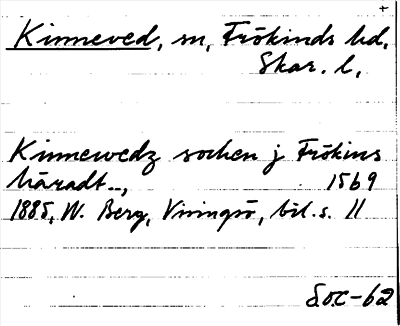 +
Kinneved, sn, Frökinds hd.
Skar. l.
Kinnewedz sochen j Frökins
häradt.., 1569
1885, W. Berg, Visingsö, bil. s. 11
S.O.C-62